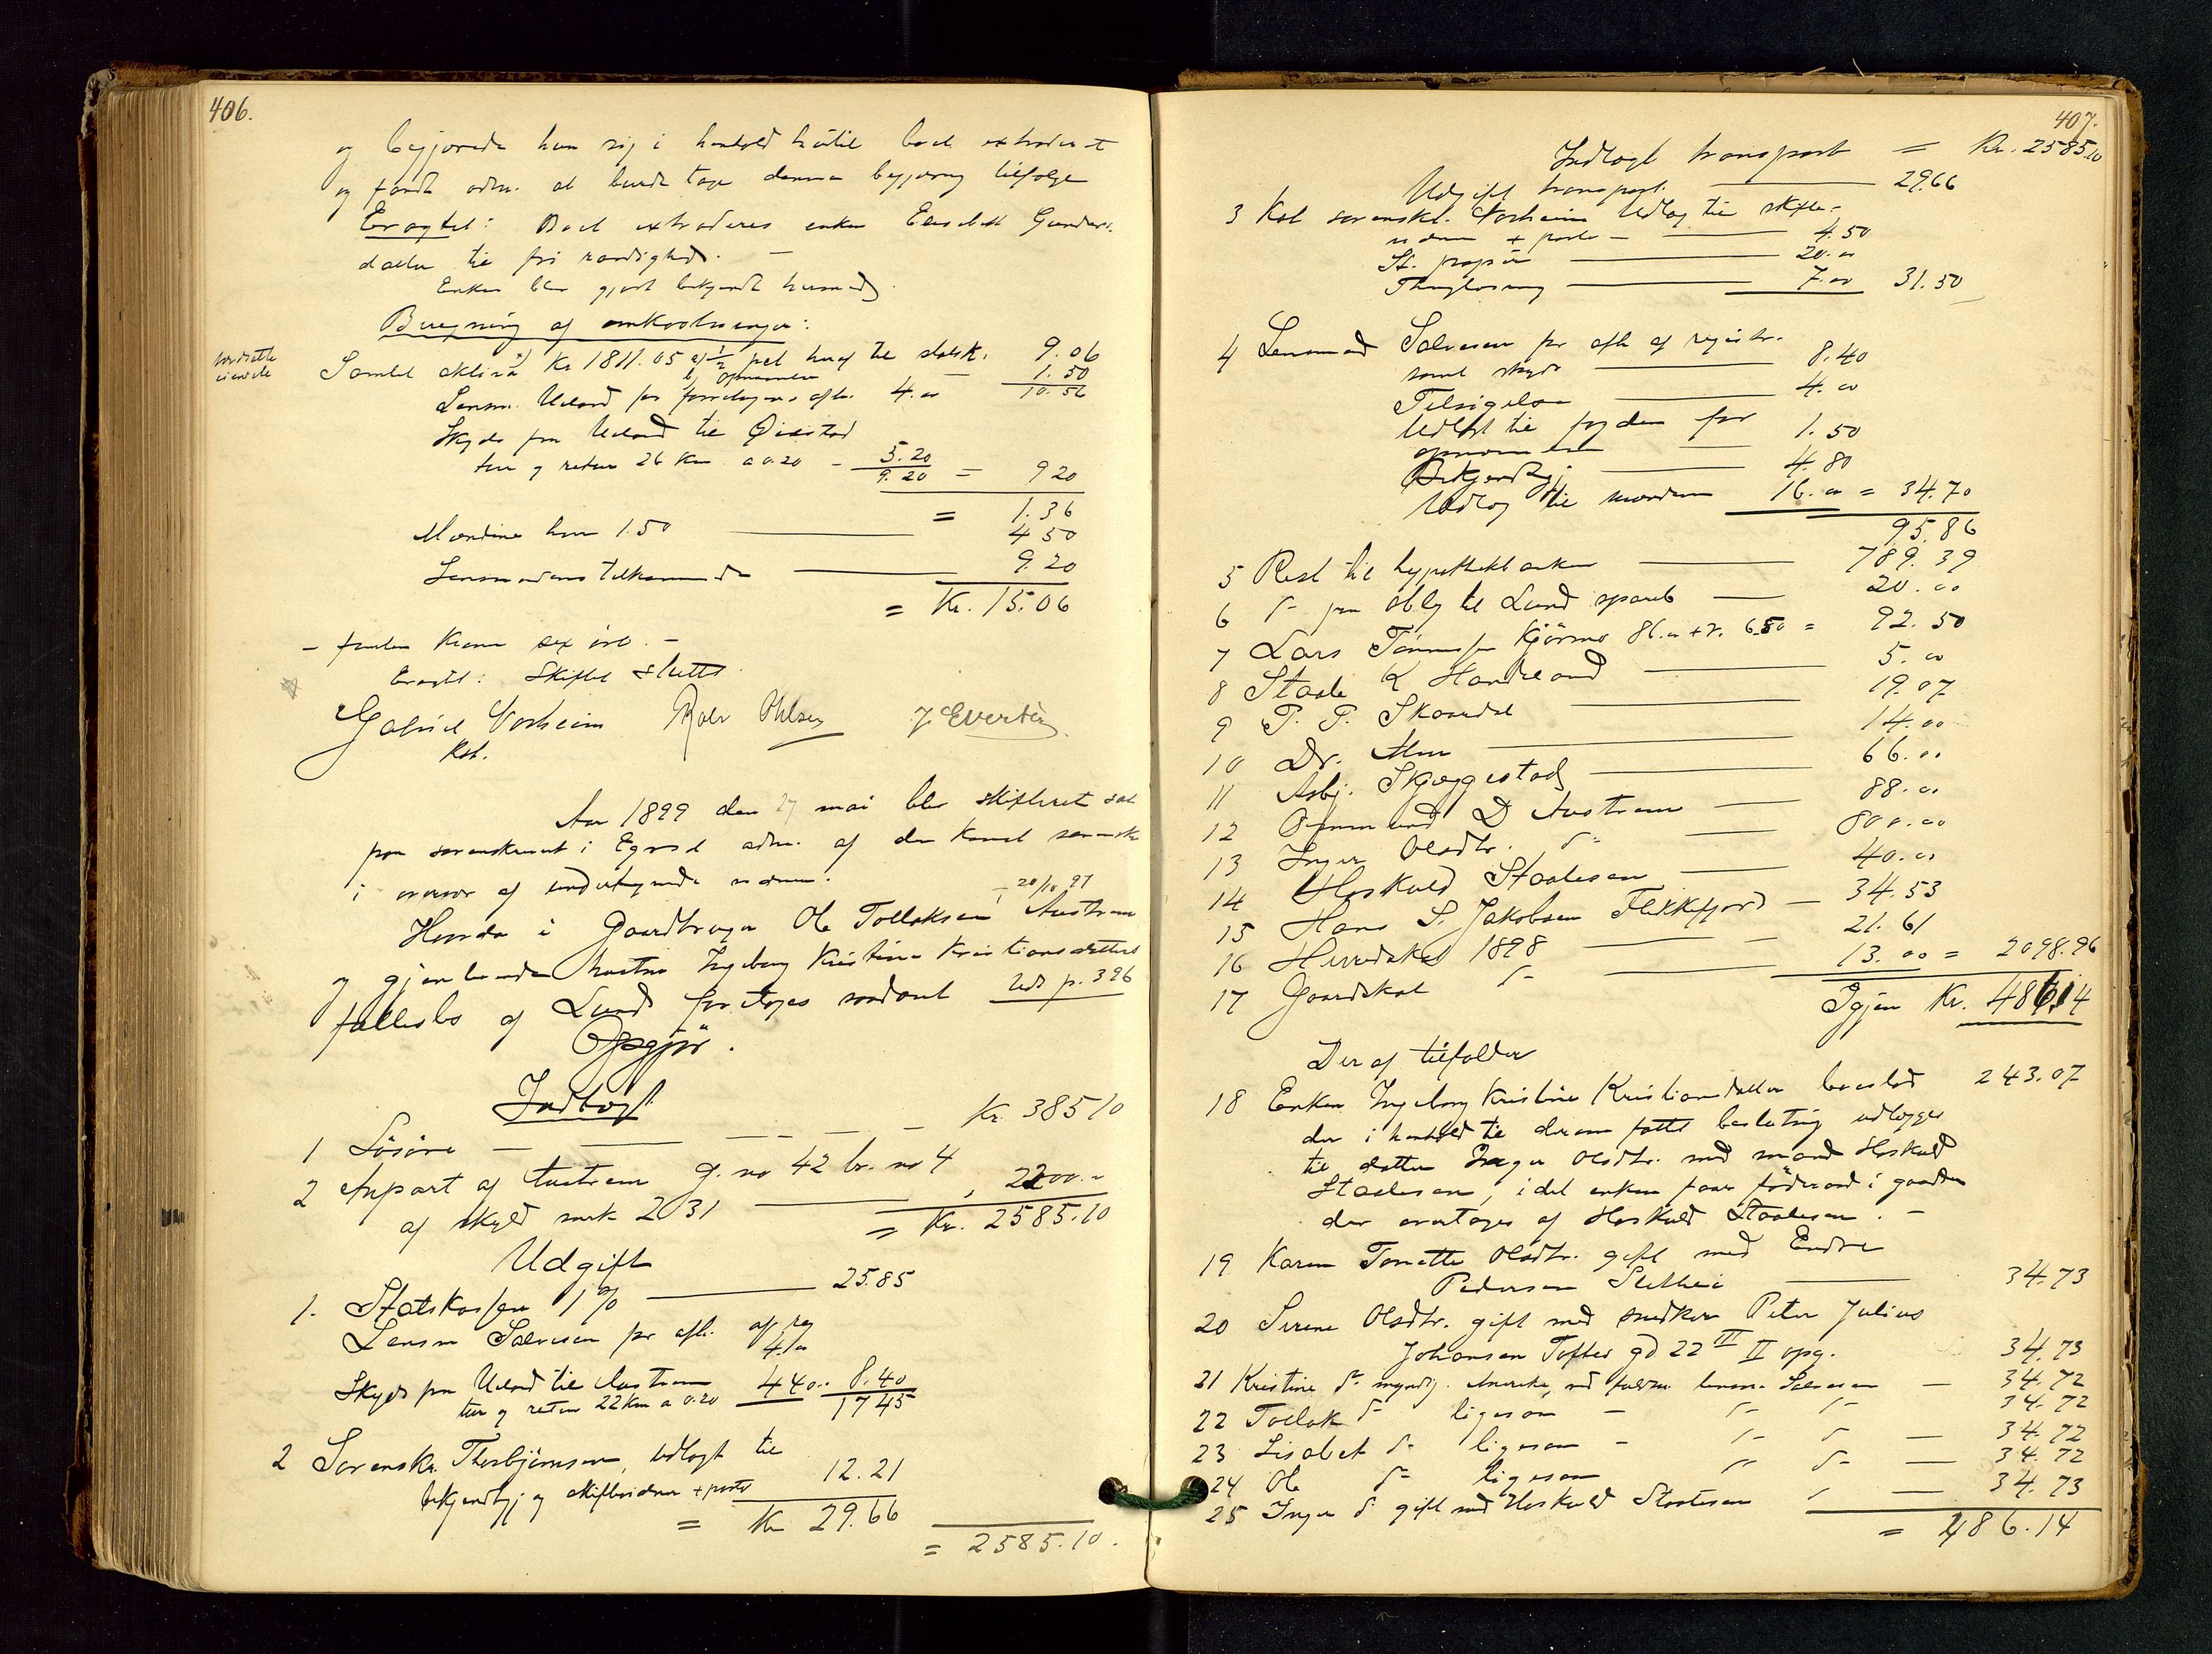 406.
og begjærede hun sig i henhold hertil boet extraderet
og fandt adm. at burde tage denne begjæring tilfølge
Eragtet: Boet extraderes enken Elisabet Gunders-
datter til fri raadighed. —
Enken blev gjort bekjendt hermed.
Beregning af omkostninger:
Samlet aktiva Kr 1811.05 a) 1/2 pct heraf til statsk. 9.06
b, opnævnelse 1.50
10.56
Lensm. Ueland for forretningens afh. 4.00
Skyds fra Ueland til Øiestad
tur og retur 26 Km a 0.20 - 5.20
9.20 = 9 20
= 1.36
Mændene hver 1.50 4 50
Lensmandens tilkommende 9.20
= Kr. 15.06
– femten Kroner sex øre. –
Eragtet: Skiftet sluttet
Gabriel Vosheim
Kst.
Aar 1899 den 27 mai blev skifteret sat
paa sorenskriveriet i Egersd adm. af den konst sorenskr
i overvær af undertegnede vidner.
Hvorda i Gaardbruger Ole Tollaksen Austrem
† 20/10 97
og gjenlevende hustru Ingeborg Kristine Kristiansdatters
fællesbo af Lund foretoges saadant Uds p. 396
Opgjør.
Indtægt
1 Løsøre — Kr. 385 10
2 Anpart af Austrem g. no 42 br. no 4
af skyld mark 2 31 , 2200.-
= Kr. 2585.10
Udgift
1. Statskassen 1 % 25.85
Lensm Salvesen for afh. af reg
4.00
Skyds fra Ueland til Austrem 440.. 8.40
tur og retur 22 Km a 0.20 1745
2 Sorenskr. Thorbjørnsen, Udlagt til
bekjendtgj og skiftevidner + porto 12.21
= Kr 29.66
= 2585.10.
407.
Indtægt transport = Kr. 2585.10
Udgift transport. 29.66
3 Kst sorenskr. Vosheim Udlæg til skifte-
vidner + porto – 4.50
St. papir 20.00
Thinglæsning 7.00 31.50
4 Lensmand Salvesen for afh af registr.
samt skyds 8.40
Tilsigelse 4.00
Udlagt til fogden for
opnævnelse 1.50
Bekjendtgj. 4.80
Udlæg til mændene 16.00 = 34.70
95.86
5 Rest til hypothekbanken 789.39
6 do paa oblg til Lund spareb 20.00
7 Lars Tønnesen Kjørmo 86.00 + r. 6.50 = 92.50
8 Staale K Handeland 5.00
9 P. P. Skaardal 19.07
10 Dr. 14.00
11 Asbj. Skjeggestad 66.00
12 Ommund D Austrem 88.00
13 Inger Olsdtr. do 800.00
14 Hoskuld Staalesen 40.00
15 Hans S. Jakobsen Flekkefjord — 34.53
16 Herredskat 1898 21.61
17 Gaardskat do 13.00 = 2098.96
Igjen Kr. 486.14
Der af tilfalder
18 Enken Ingeborg Kristine Kristiansdatter boeslod 243.07
der i henhold til derom fattet beslutning udlægges
til datter Inger Olsdtr. med mand Hoskuld
Staalesen, idet enken faar føderaad i gaarden
der overtages af Hoskuld Staalesen. –
19 Karen Tonette Olsdtr. gift med Endre
Pedersen Slethei 34.73
20 Serine Olsdtr. gift med snedker Peter Julius
Johansen Toftes gd 22 III II opg. 34.73
21 Kristine do myndig. Amerika, ved fuldm. lensm. Salvesen — 34.72
22 Tollak do ligesaa – do do 34.72
23 Lisabet do ligesaa – do do — 34.72
24 Ole do ligesaa do do — 34.72
25 Inger do gift med Hoskuld Staalesen — 34.73
= 486.14